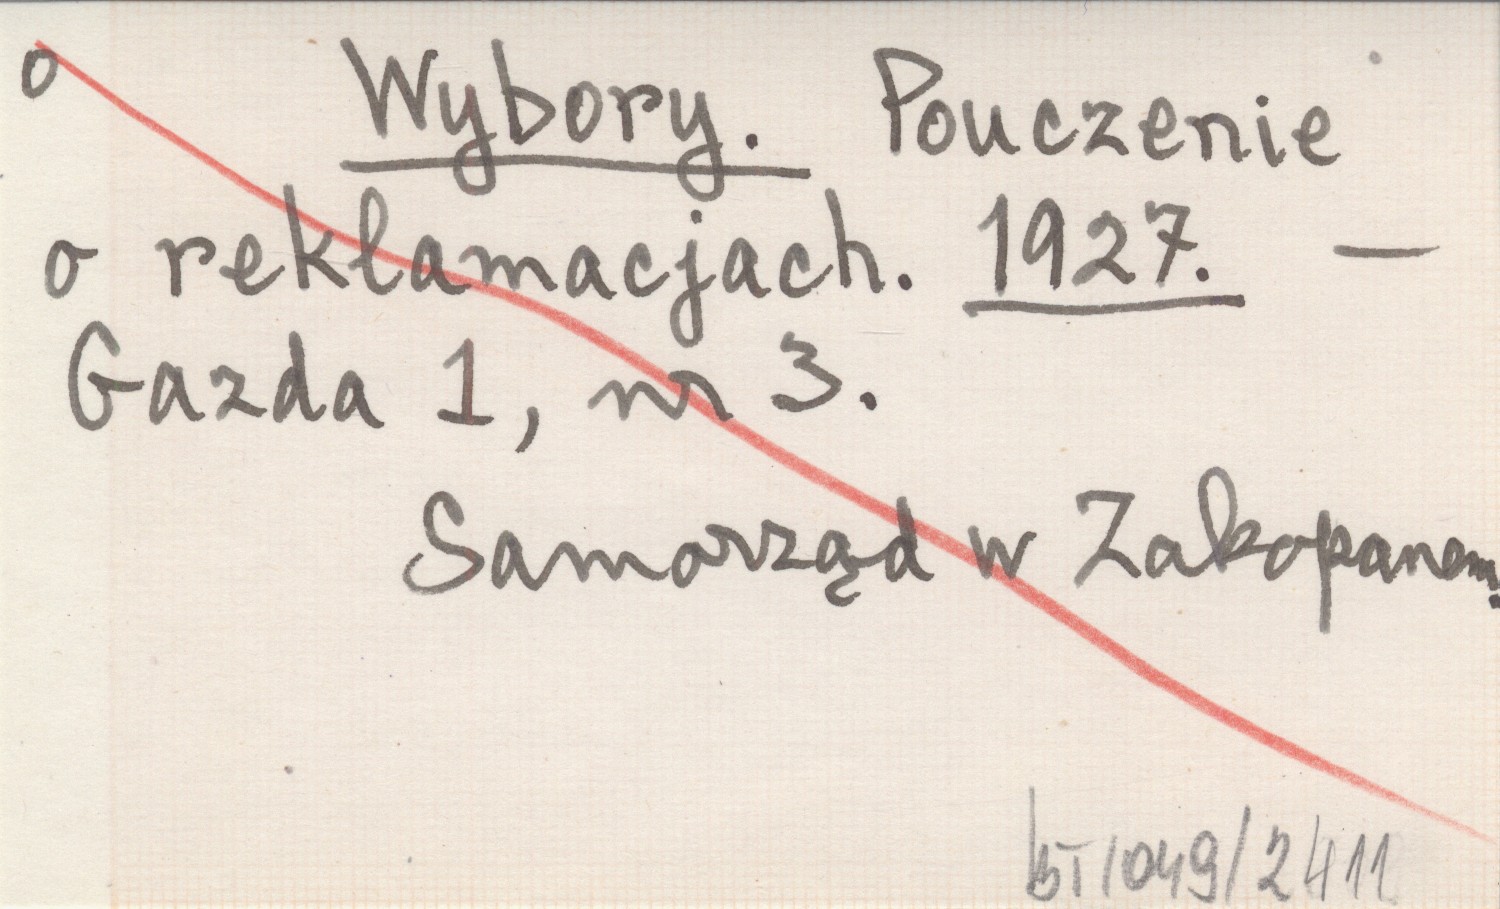 o Wybory. Pouczenie
o reklamacjach. 1927. —
Gazda 1, nr 3.
Samorząd w Zakopanem.
/049/2411